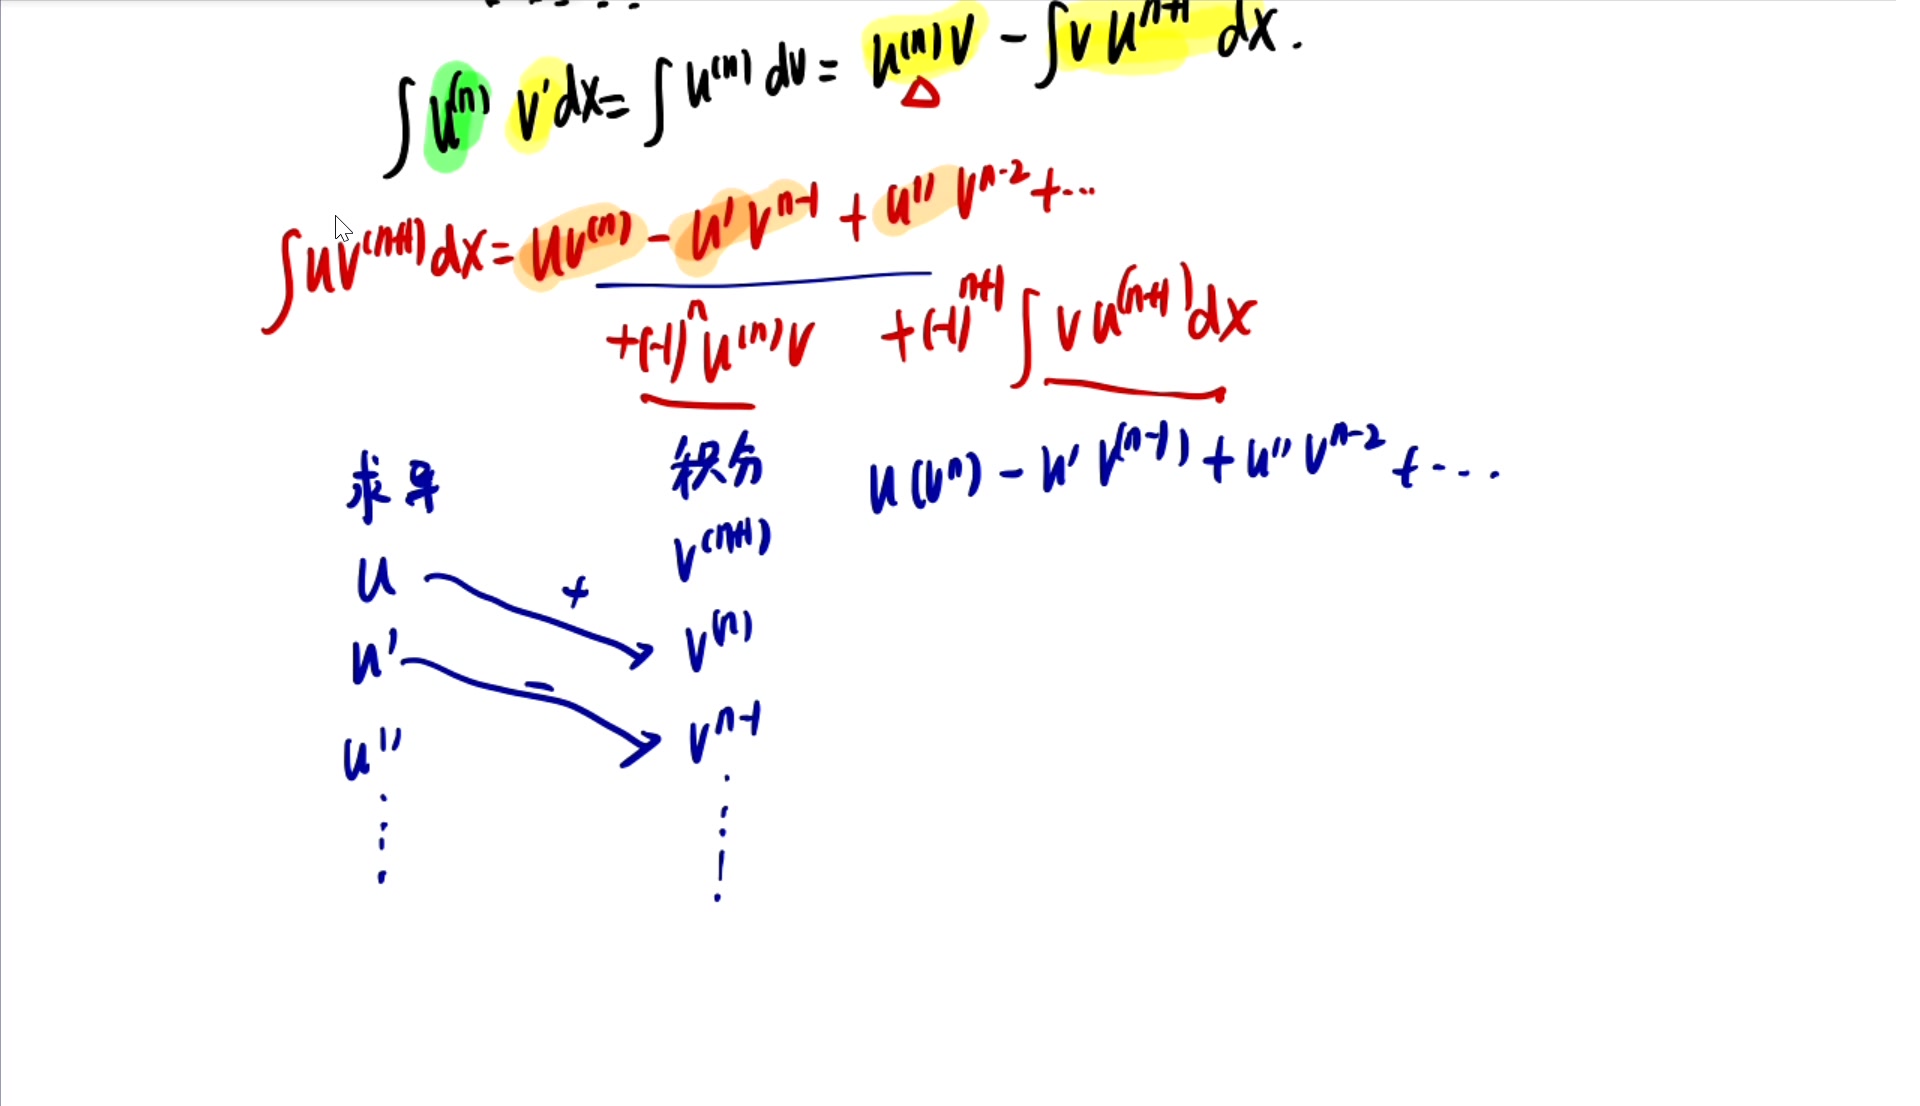 ∫u⁽ⁿ⁾ v'dx = ∫u⁽ⁿ⁾ dv = u⁽ⁿ⁾v - ∫v uⁿ⁺¹ dx.
∫uv⁽ⁿ⁺¹⁾dx = uv⁽ⁿ⁾ - u'vⁿ⁻¹ + u''vⁿ⁻² + ...
+(-1)ⁿu⁽ⁿ⁾v +(-1)ⁿ⁺¹∫vu⁽ⁿ⁺¹⁾dx
求导 积分 u(vⁿ) - u'v⁽ⁿ⁻¹⁾ + u''vⁿ⁻² + ...
v⁽ⁿ⁺¹⁾
u +
v⁽ⁿ⁾
u' -
vⁿ⁻¹
u''